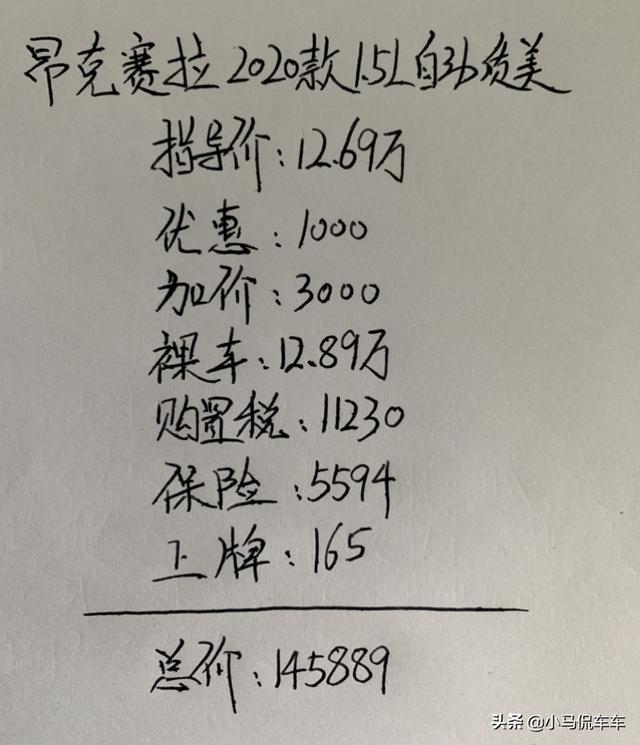 昂克赛拉2020款1.5L自动质美
指导价:12.69万
优惠:1000
加价:3000
裸车:12.89万
购置税:11230
保险:5594
上牌:165
总价:145889
头条@小马侃车车